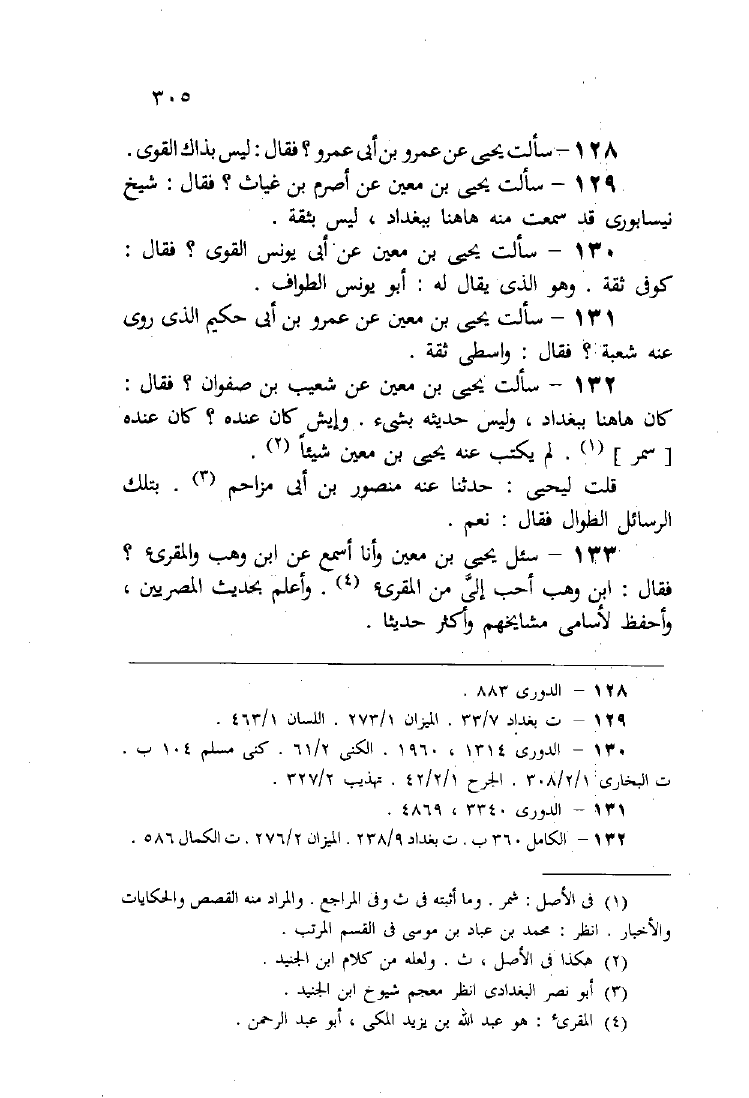 ٣٠٥
١٢٨ – سألت يحيى عن عمرو بن أبى عمرو ؟ فقال : ليس بذاك القوى .
١٢٩ – سألت يحيى بن معين عن أصرم بن غياث ؟ فقال : شيخ
نيسابورى قد سمعت منه هاهنا ببغداد ، ليس بثقة .
١٣٠ – سألت يحيى بن معين عن أبى يونس القوى ؟ فقال :
كوفى ثقة . وهو الذى يقال له : أبو يونس الطواف .
١٣١ – سألت يحيى بن معين عن عمرو بن أبى حكيم الذى روى
عنه شعبة ؟ فقال : واسطى ثقة .
١٣٢ – سألت يحيى بن معين عن شعيب بن صفوان ؟ فقال :
كان هاهنا ببغداد ، وليس حديثه بشىء . وإيش كان عنده ؟ كان عنده
[ سمر ] (١) . لم يكتب عنه يحيى بن معين شيئاً (٢) .
قلت ليحيى : حدثنا عنه منصور بن أبى مزاحم (٣) . بتلك
الرسائل الطوال فقال : نعم .
١٣٣ – سئل يحيى بن معين وأنا أسمع عن ابن وهب والمقرىء ؟
فقال : ابن وهب أحب إلىَّ من المقرىء (٤) . وأعلم بحديث المصريين ،
وأحفظ لأسامى مشايخهم وأكثر حديثا .
١٢٨ – الدورى ٨٨٣ .
١٢٩ – ت بغداد ٣٣/٧ . الميزان ٢٧٣/١ . اللسان ٤٦٣/١ .
١٣٠ – الدورى ١٣١٤ ، ١٩٦٠ . الكنى ٦١/٢ . كنى مسلم ١٠٤ ب .
ت البخارى ٣٠٨/٢/١ . الجرح ٤٢/٢/١ . تهذيب ٣٢٧/٢ .
١٣١ – الدورى ٣٣٤٠ ، ٤٨٦٩ .
١٣٢ – الكامل ٣٦٠ ب . ت بغداد ٢٣٨/٩ . الميزان ٢٧٦/٢ . ت الكمال ٥٨٦ .
(١) فى الأصل : شمر . وما أثبته فى ث وفى المراجع . والمراد منه القصص والحكايات
والأخبار . انظر : محمد بن عباد بن موسى فى القسم المرتب .
(٢) هكذا فى الأصل ، ث . ولعله من كلام ابن الجنيد .
(٣) أبو نصر البغدادى انظر معجم شيوخ ابن الجنيد .
(٤) المقرىء : هو عبد الله بن يزيد المكى ، أبو عبد الرحمن .